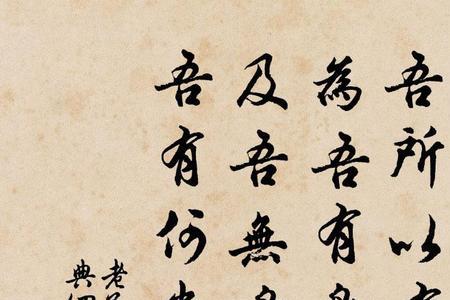 吾所以
為吾有
及吾無
吾有何
老
典